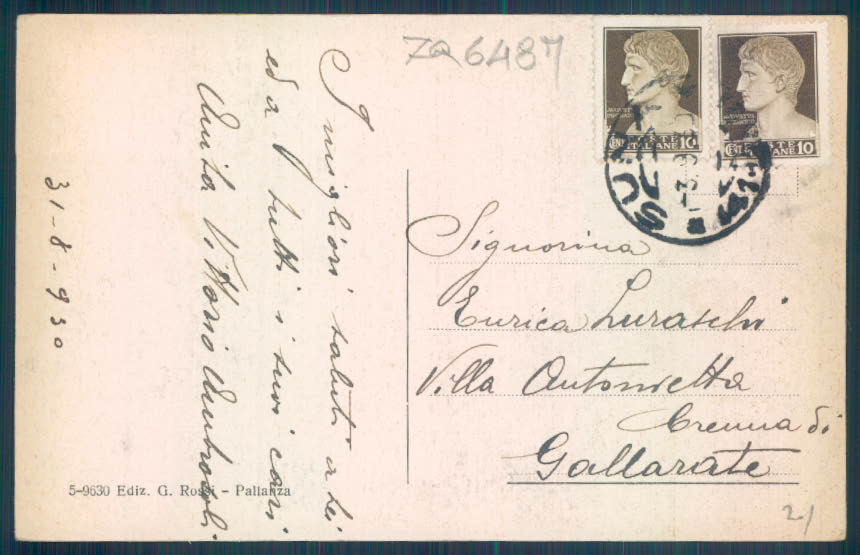 ZQ6487
I migliori saluti a Lei
ed a tutti i suoi cari
Anita Vittorio Ambrosoli
31-8-930
CENT POSTE ITALIANE 10
CENT POSTE ITALIANE 10
SUNA
Signorina
Enrica Luraschi
Villa Antonietta
Crenna di
Gallarate
5-9630 Ediz. G. Rossi - Pallanza
2/